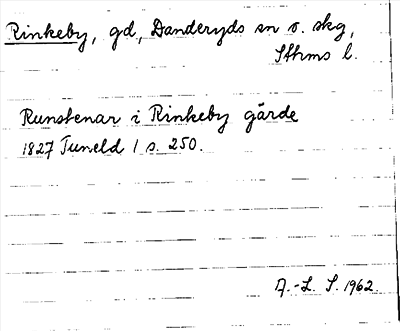 Rinkeby, gd, Danderyds sn o. skg,
Sthms l.
Runstenar i Rinkeby gärde
1827 Tuneld 1 s. 250.
A.-L. S. 1962